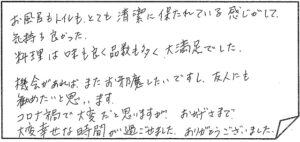 お風呂もトイレも、とても清潔に保たれている感じがして、
気持ち良かった。
料理は味も良く品数も多く、大満足でした。
機会があれば、またお邪魔したいですし、友人にも
勧めたいと思います。
コロナ禍で大変だと思いますが、おかげさまで
大変幸せな時間が過ごせました。ありがとうございました。